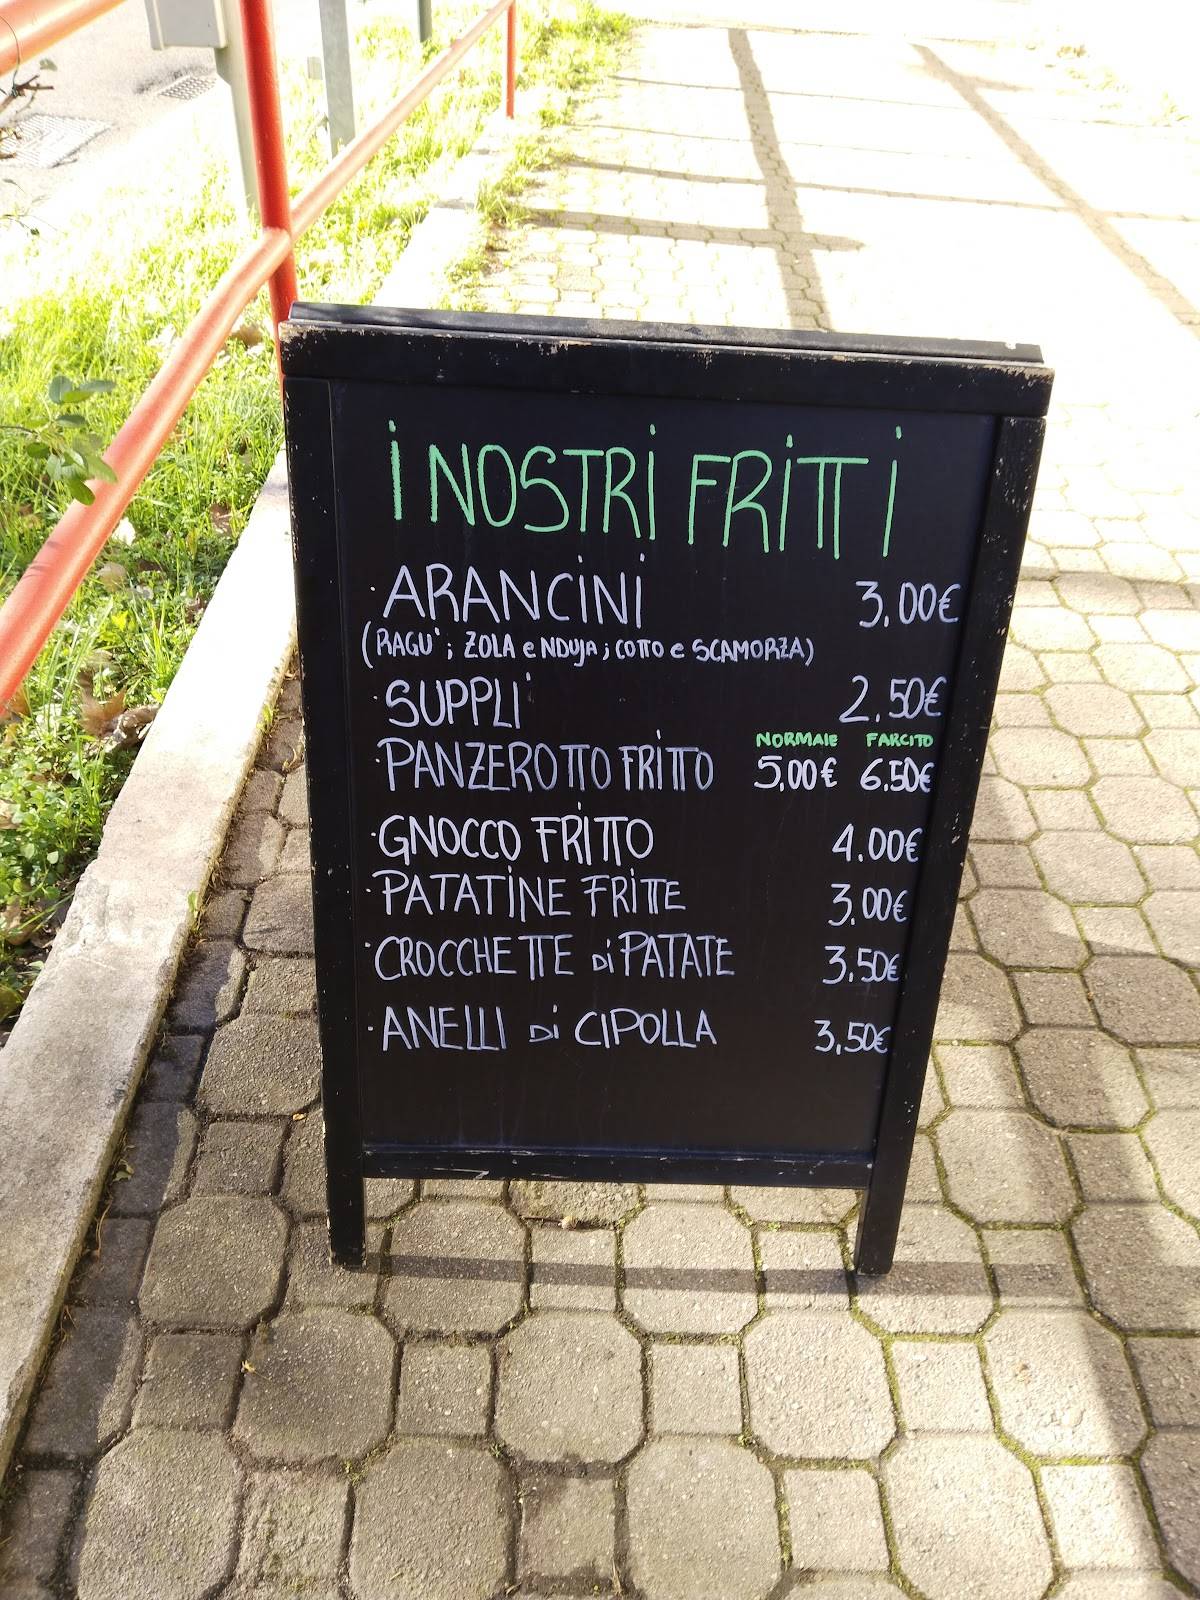 i NOSTRi FRiTTi
· ARANCiNi 3.00€
(RAGU'; ZOLA e NDUJA; COTTO e SCAMORZA)
· SUPPLI' 2.50€
NORMALE FARCITO
· PANZEROTTO FRiTTO 5,00€ 6.50€
· GNOCCO FRiTTO 4.00€
· PATATiNE FRiTTE 3,00€
· CROCCHETTE Di PATATE 3,50€
· ANELLI Di CIPOLLA 3,50€